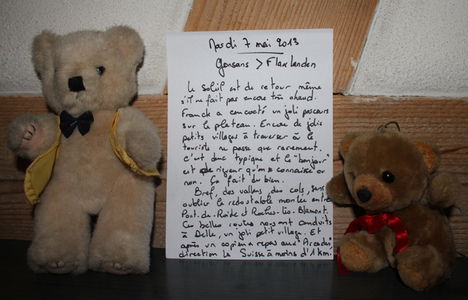 Mardi 7 mai 2013
Gonsans > Flaxlanden
Le soleil est de retour même
s'il ne fait pas encore très chaud.
Franck a concocté un joli parcours
sur le plateau. Encore de jolis
petits villages à traverser où le
touriste ne passe que rarement.
C'est donc typique et le "bonjour"
est de rigueur qu'on se connaisse ou
non. Ça fait du bien.
Bref, des vallons, des cols, sans
oublier la redoutable montée entre
Pont-de-Roide et Roches-lès-Blamont.
Ces belles routes nous ont conduits
à Delle, un joli petit village. Et
après un copieux repas aux Arcades,
direction la Suisse à moins d'1 km.